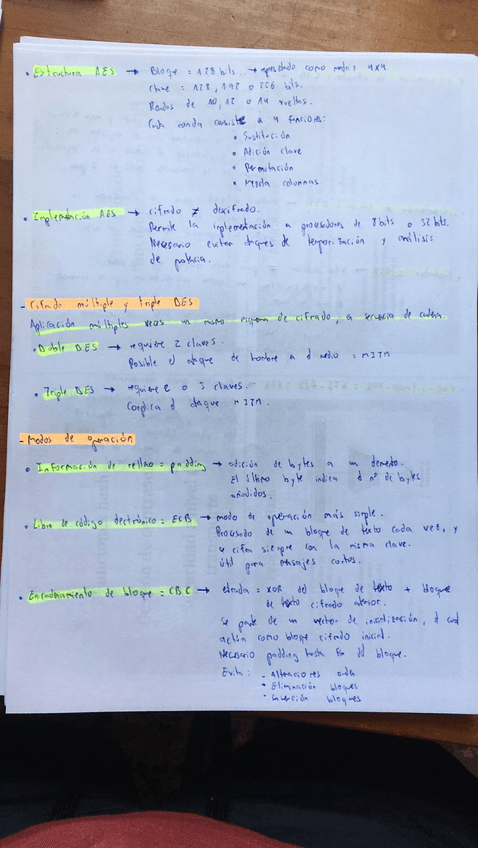 • Estructura AES → Bloque = 128 bits. → representado como matriz 4x4
Clave = 128, 192 o 256 bits.
Rondas de 10, 12 o 14 vueltas.
Cada ronda consiste a 4 funciones:
• Sustitución
• Adición clave
• Permutación
• Mezcla columnas
• Implementación AES → cifrado ≠ descifrado.
Permite la implementación a procesadores de 8 bits o 32 bits.
Necesario evitar ataques de temporización y análisis
de potencia.
- Cifrado múltiple y triple DES
Aplicación múltiples veces un mismo esquema de cifrado, a secuencia de cadena.
• Doble DES → requiere 2 claves.
Posible el ataque de hombre a el medio = MITM
• Triple DES → requiere 2 o 3 claves.
Complica el ataque MITM
- Modos de operación
• Información de relleno = padding → adición de bytes a un elemento.
El último byte indica el nº de bytes
añadidos.
• Libro de código electrónico = ECB → modo de operación más simple.
Procesado de un bloque de texto cada vez, y
se cifra siempre con la misma clave.
Útil para mensajes cortos.
• Encadenamiento de bloque = CBC → entrada = XOR del bloque de texto + bloque
de texto cifrado anterior.
Se parte de un vector de inicialización, el cual
actúa como bloque cifrado inicial.
Necesario padding hasta fin del bloque.
Evita: - Alteraciones orden
- Eliminación bloques
- Inserción bloques